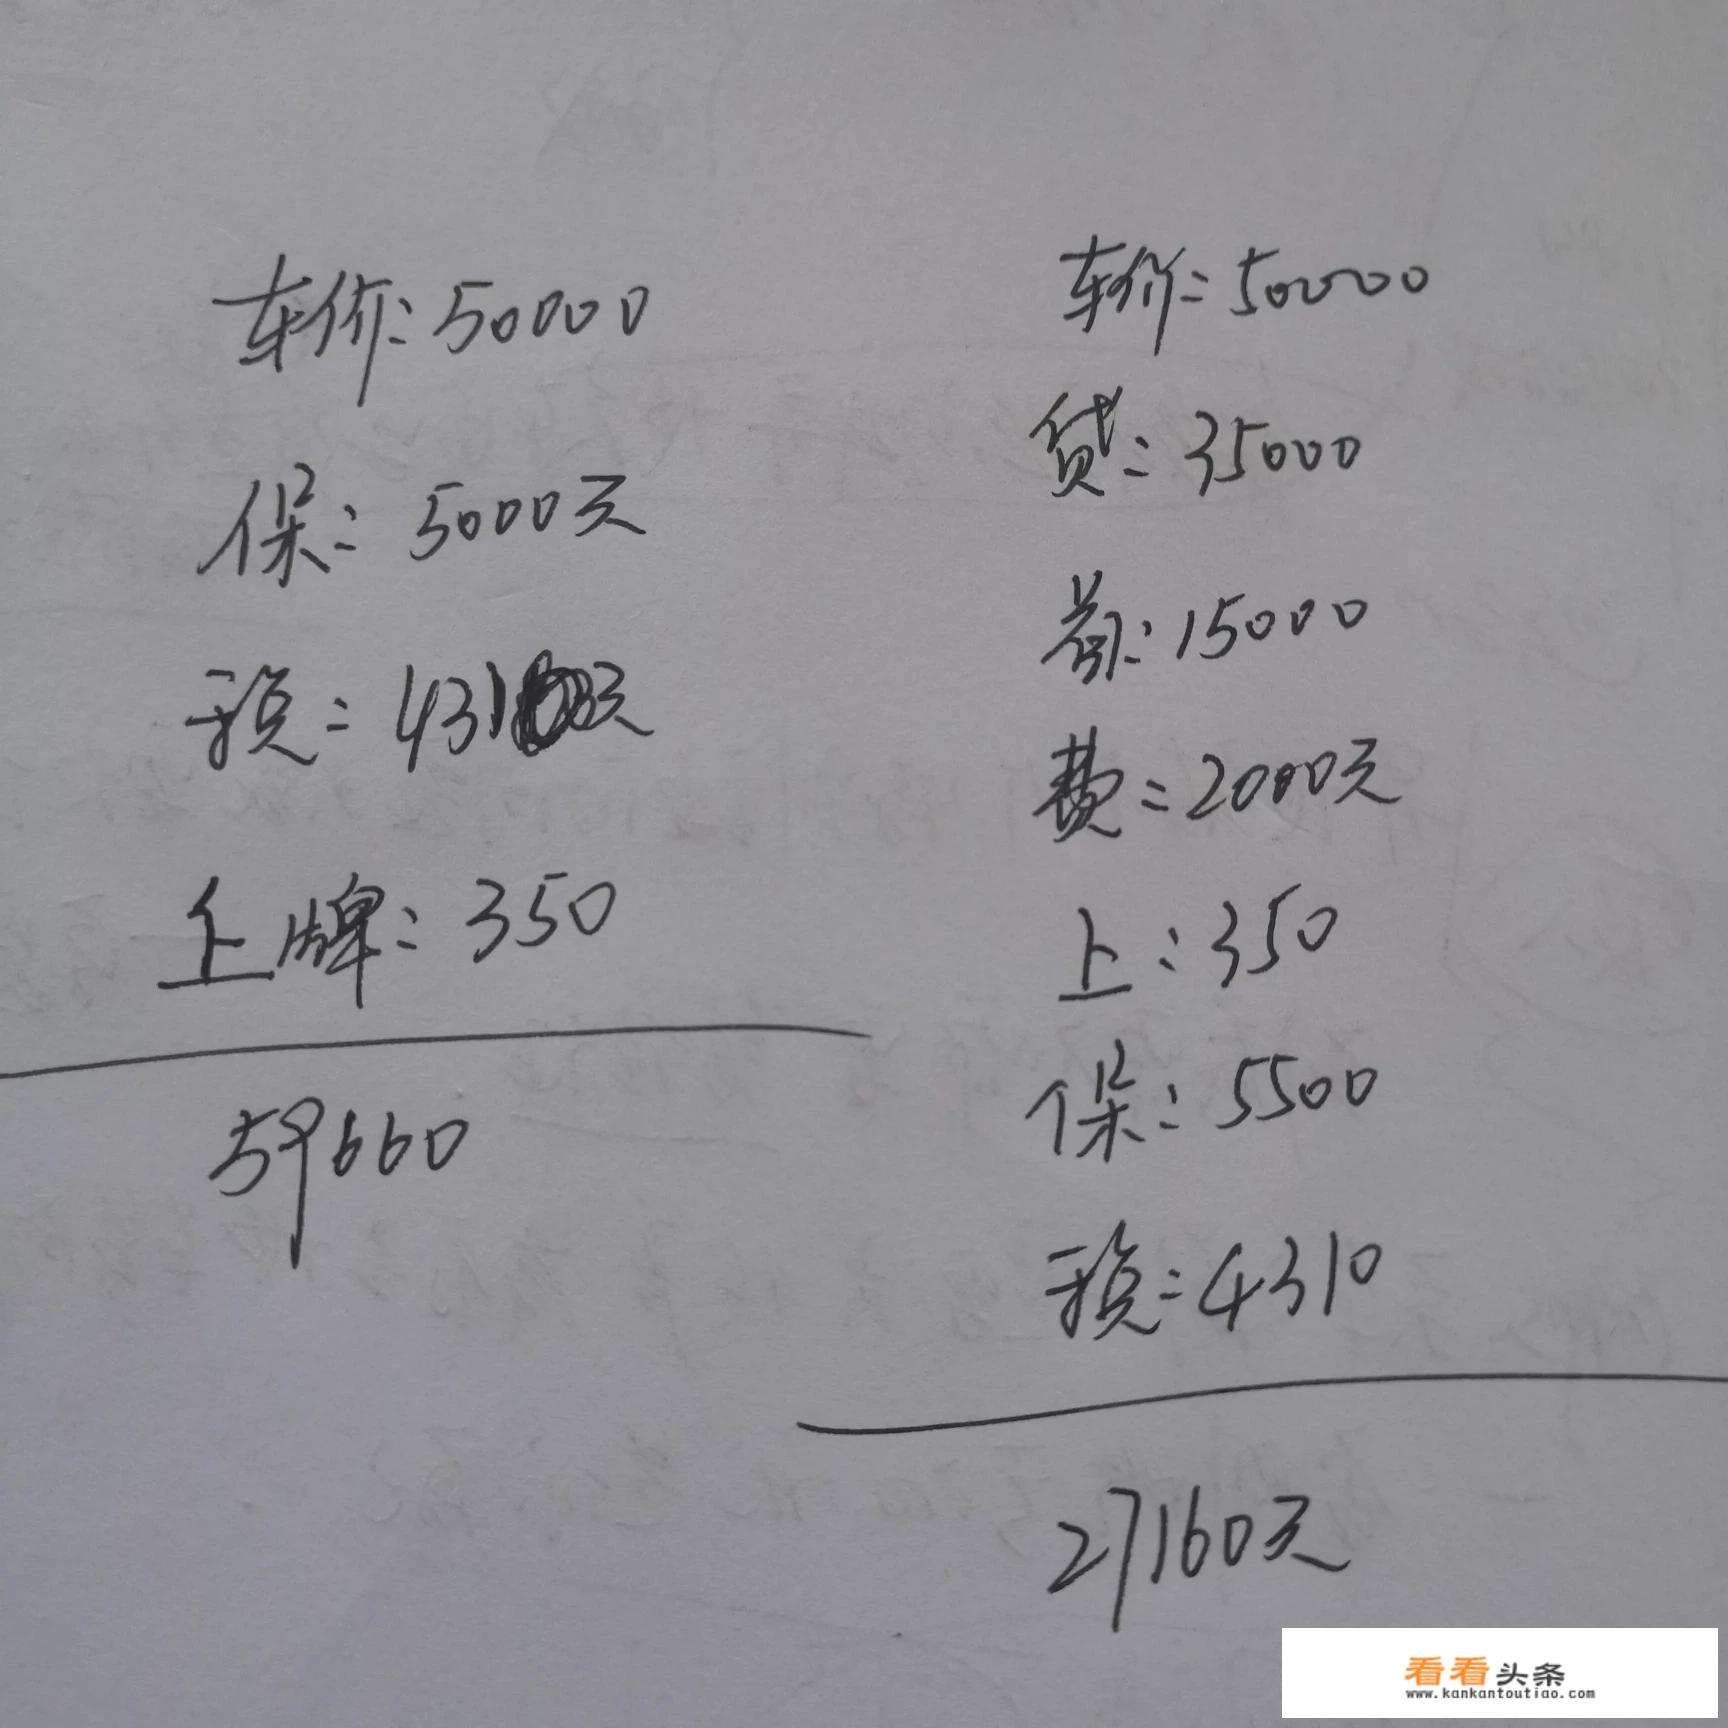 车价:50000
保:5000元
税:4310元
上牌:350
59660
车价:50000
贷:35000
首:15000
费:2000元
上:350
保:5500
税:4310
27160元
看看头条
www.kankantoutiao.com